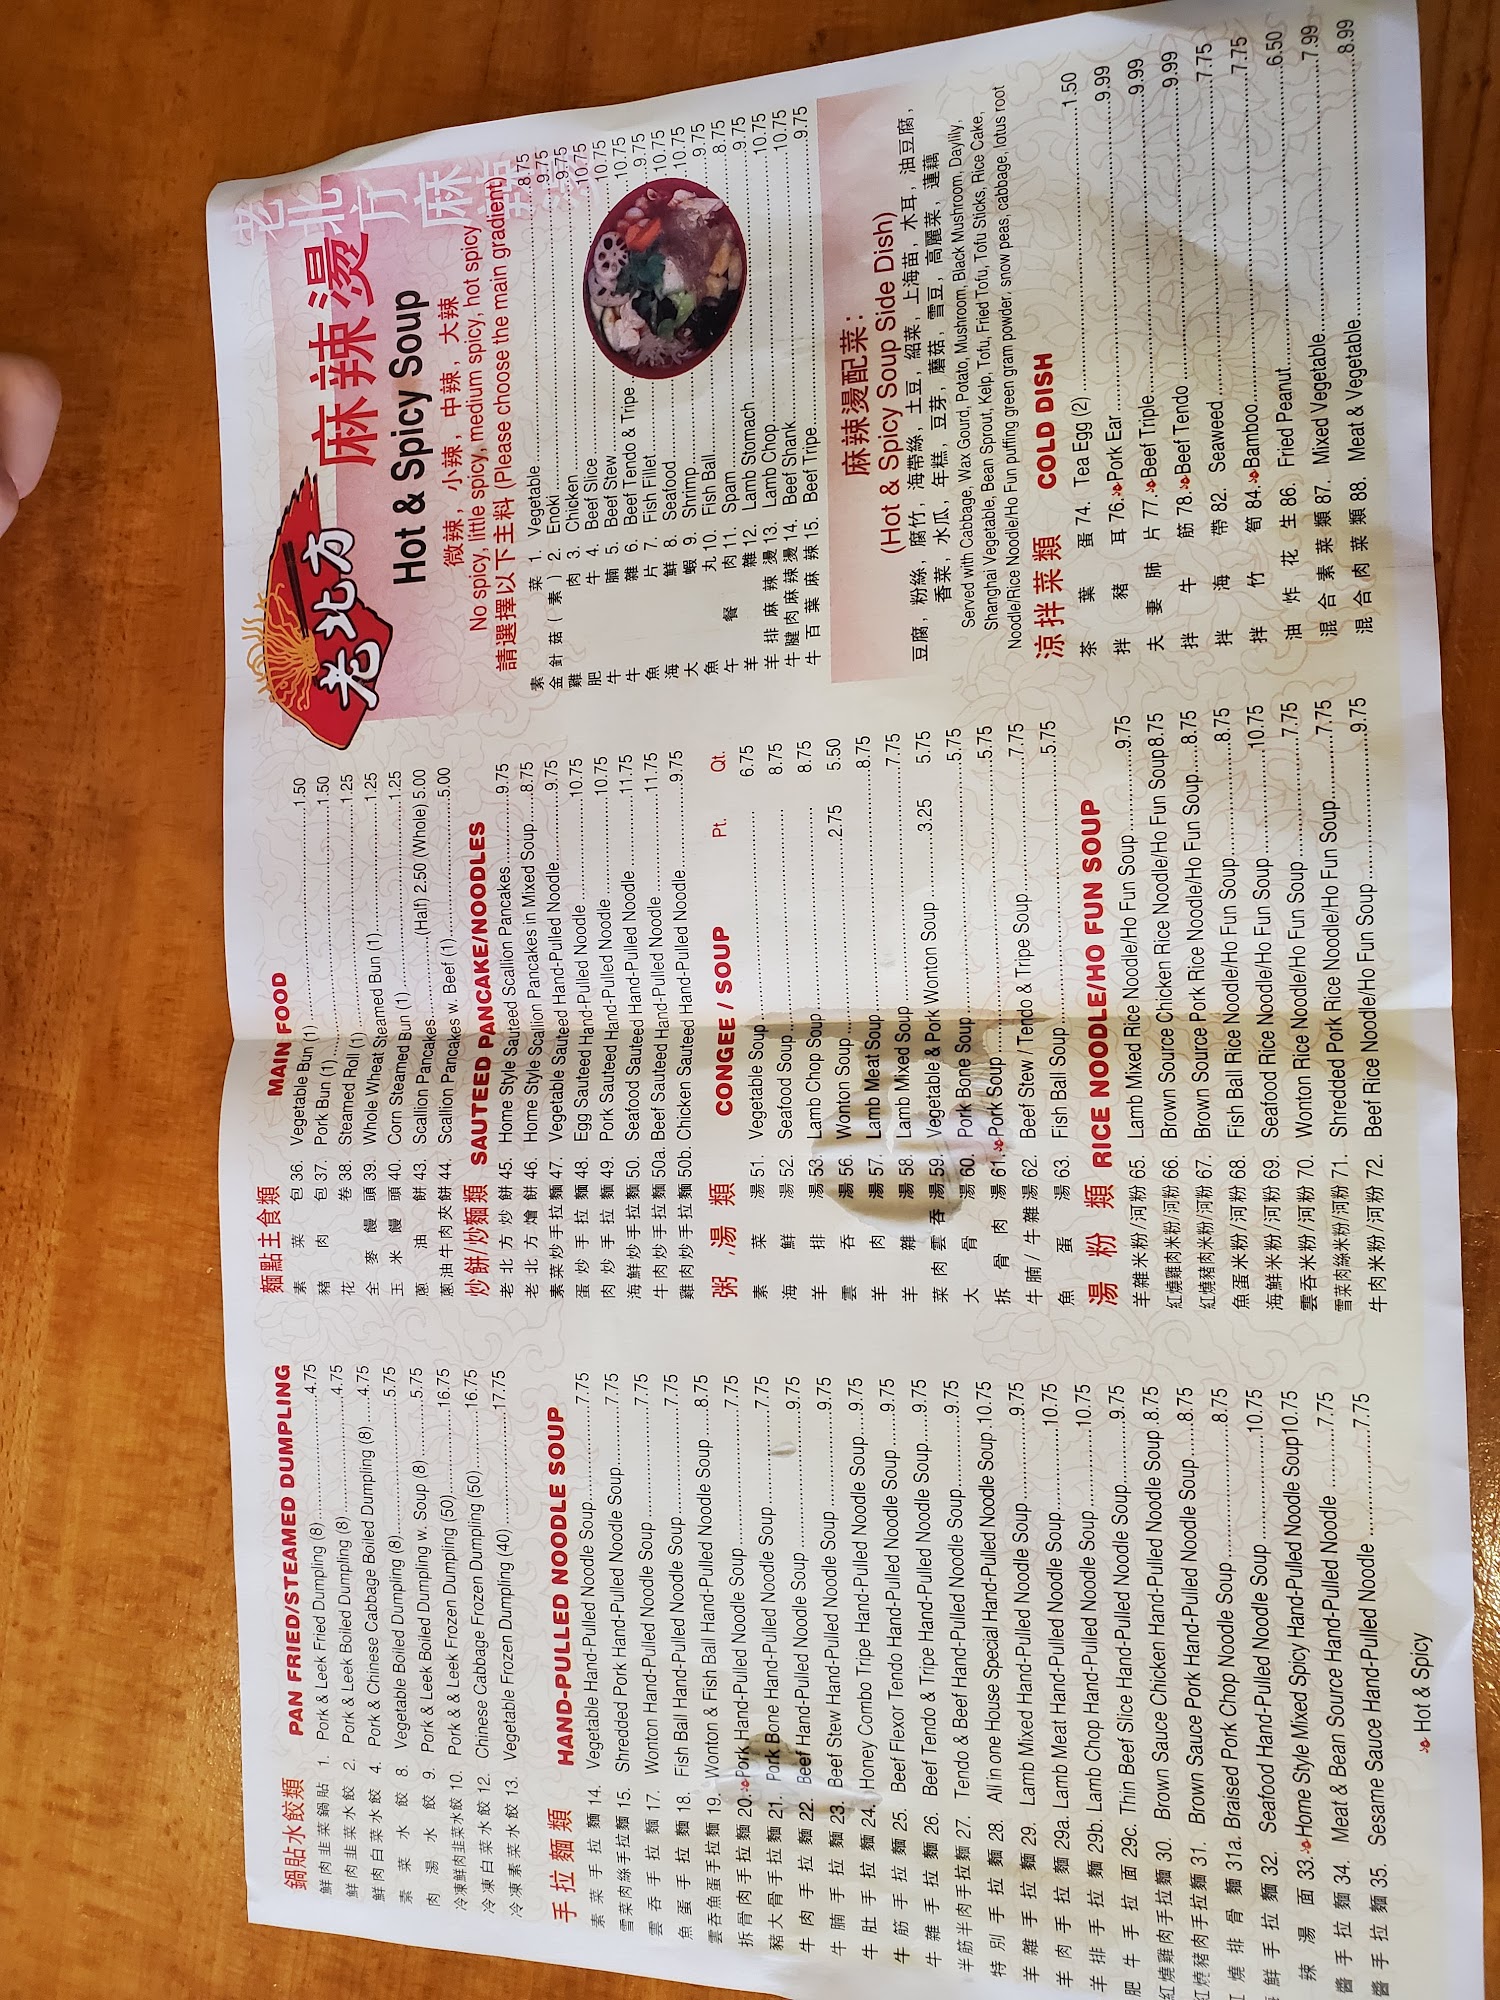 鍋貼水餃類 PAN FRIED/STEAMED DUMPLING
鮮肉韭菜鍋貼 1. Pork & Leek Fried Dumpling (8) 4.75
鮮肉韭菜水餃 2. Pork & Leek Boiled Dumpling (8) 4.75
鮮肉白菜水餃 4. Pork & Chinese Cabbage Boiled Dumpling (8) 4.75
素菜水餃 8. Vegetable Boiled Dumpling (8) 5.75
肉湯水餃 9. Pork & Leek Boiled Dumpling w. Soup (8) 5.75
冷凍鮮肉韭菜水餃 10. Pork & Leek Frozen Dumpling (50) 16.75
冷凍白菜水餃 12. Chinese Cabbage Frozen Dumpling (50) 16.75
冷凍素菜水餃 13. Vegetable Frozen Dumpling (40) 17.75
手拉麵類 HAND-PULLED NOODLE SOUP
素菜手拉麵 14. Vegetable Hand-Pulled Noodle Soup 7.75
雪菜肉絲手拉麵 15. Shredded Pork Hand-Pulled Noodle Soup 7.75
雲吞手拉麵 17. Wonton Hand-Pulled Noodle Soup 7.75
魚蛋手拉麵 18. Fish Ball Hand-Pulled Noodle Soup 7.75
雲吞魚蛋手拉麵 19. Wonton & Fish Ball Hand-Pulled Noodle Soup 8.75
拆骨肉手拉麵 20. Pork Hand-Pulled Noodle Soup 7.75
豬大骨手拉麵 21. Pork Bone Hand-Pulled Noodle Soup 7.75
牛肉手拉麵 22. Beef Hand-Pulled Noodle Soup 9.75
牛腩手拉麵 23. Beef Stew Hand-Pulled Noodle Soup 9.75
牛肚手拉麵 24. Honey Combo Tripe Hand-Pulled Noodle Soup 9.75
牛筋手拉麵 25. Beef Flexor Tendo Hand-Pulled Noodle Soup 9.75
牛雜手拉麵 26. Beef Tendo & Tripe Hand-Pulled Noodle Soup 9.75
半筋半肉手拉麵 27. Tendo & Beef Hand-Pulled Noodle Soup 9.75
特別手拉麵 28. All in one House Special Hand-Pulled Noodle Soup 10.75
羊雜手拉麵 29. Lamb Mixed Hand-Pulled Noodle Soup 9.75
羊肉手拉麵 29a. Lamb Meat Hand-Pulled Noodle Soup 10.75
羊排手拉麵 29b. Lamb Chop Hand-Pulled Noodle Soup 10.75
肥牛手拉面 29c. Thin Beef Slice Hand-Pulled Noodle Soup 9.75
紅燒雞肉手拉麵 30. Brown Sauce Chicken Hand-Pulled Noodle Soup 8.75
紅燒豬肉手拉麵 31. Brown Sauce Pork Hand-Pulled Noodle Soup 8.75
燒排骨麵 31a. Braised Pork Chop Noodle Soup 8.75
鮮手拉麵 32. Seafood Hand-Pulled Noodle Soup 10.75
辣湯面 33. Home Style Mixed Spicy Hand-Pulled Noodle Soup 10.75
醬手拉麵 34. Meat & Bean Source Hand-Pulled Noodle 7.75
醬手拉麵 35. Sesame Sauce Hand-Pulled Noodle 7.75
Hot & Spicy
麵點主食類 MAIN FOOD
素菜包 36. Vegetable Bun (1) 1.50
豬肉包 37. Pork Bun (1) 1.50
花卷 38. Steamed Roll (1) 1.25
全麥饅頭 39. Whole Wheat Steamed Bun (1) 1.25
玉米饅頭 40. Corn Steamed Bun (1) 1.25
蔥油餅 43. Scallion Pancakes (Half) 2.50 (Whole) 5.00
蔥油牛肉夾餅 44. Scallion Pancakes w. Beef (1) 5.00
炒餅/炒麵類 SAUTEED PANCAKE/NOODLES
老北方炒餅 45. Home Style Sauteed Scallion Pancakes 9.75
老北方燴餅 46. Home Style Scallion Pancakes in Mixed Soup 8.75
素菜炒手拉麵 47. Vegetable Sauteed Hand-Pulled Noodle 9.75
蛋炒手拉麵 48. Egg Sauteed Hand-Pulled Noodle 10.75
肉炒手拉麵 49. Pork Sauteed Hand-Pulled Noodle 10.75
海鮮炒手拉麵 50. Seafood Sauteed Hand-Pulled Noodle 11.75
牛肉炒手拉麵 50a. Beef Sauteed Hand-Pulled Noodle 11.75
雞肉炒手拉麵 50b. Chicken Sauteed Hand-Pulled Noodle 9.75
粥,湯類 CONGEE / SOUP Pt. Qt.
素菜湯 51. Vegetable Soup 6.75
海鮮湯 52. Seafood Soup 8.75
羊排湯 53. Lamb Chop Soup 8.75
雲吞湯 56. Wonton Soup 2.75 5.50
羊肉湯 57. Lamb Meat Soup 8.75
羊雜湯 58. Lamb Mixed Soup 7.75
菜肉雲吞湯 59. Vegetable & Pork Wonton Soup 3.25 5.75
大骨湯 60. Pork Bone Soup 5.75
拆骨肉湯 61. Pork Soup 5.75
牛腩/牛雜湯 62. Beef Stew / Tendo & Tripe Soup 7.75
魚蛋湯 63. Fish Ball Soup 5.75
湯粉類 RICE NOODLE/HO FUN SOUP
羊雜米粉/河粉 65. Lamb Mixed Rice Noodle/Ho Fun Soup 9.75
紅燒雞肉米粉/河粉 66. Brown Source Chicken Rice Noodle/Ho Fun Soup 8.75
紅燒豬肉米粉/河粉 67. Brown Source Pork Rice Noodle/Ho Fun Soup 8.75
魚蛋米粉/河粉 68. Fish Ball Rice Noodle/Ho Fun Soup 8.75
海鮮米粉/河粉 69. Seafood Rice Noodle/Ho Fun Soup 10.75
雲吞米粉/河粉 70. Wonton Rice Noodle/Ho Fun Soup 7.75
雪菜肉絲米粉/河粉 71. Shredded Pork Rice Noodle/Ho Fun Soup 7.75
牛肉米粉/河粉 72. Beef Rice Noodle/Ho Fun Soup 9.75
老北方
老北方麻辣燙
麻辣燙
Hot & Spicy Soup
微辣, 小辣, 中辣, 大辣
No spicy, little spicy, medium spicy, hot spicy
請選擇以下主料 (Please choose the main gradient)
素菜 1. Vegetable 8.75
金針菇(素) 2. Enoki 9.75
雞肉 3. Chicken 9.75
肥牛 4. Beef Slice 10.75
牛腩 5. Beef Stew 10.75
牛雜 6. Beef Tendo & Tripe 10.75
魚片 7. Fish Filet 9.75
海鮮 8. Seafood 10.75
大蝦 9. Shrimp 10.75
魚丸 10. Fish Ball 9.75
午餐肉 11. Spam 8.75
羊雜 12. Lamb Stomach 9.75
羊排麻辣燙 13. Lamb Chop 10.75
牛腱肉麻辣燙 14. Beef Shank 10.75
牛百葉麻辣 15. Beef Tripe 9.75
麻辣燙配菜:
(Hot & Spicy Soup Side Dish)
豆腐, 粉絲, 腐竹, 海帶絲, 土豆, 紹菜, 上海苗, 木耳, 油豆腐,
香菜, 水瓜, 年糕, 豆芽, 蘑菇, 雪豆, 高麗菜, 蓮藕
Served with Cabbage, Wax Gourd, Potato, Mushroom, Black Mushroom, Daylily,
Shanghai Vegetable, Bean Sprout, Kelp, Tofu, Fried Tofu, Tofu Sticks, Rice Cake,
Noodle/Rice Noodle/Ho Fun puffing green gram powder, snow peas, cabbage, lotus root
涼拌菜類 COLD DISH
茶葉蛋 74. Tea Egg (2) 1.50
拌豬耳 76. Pork Ear 9.99
夫妻肺片 77. Beef Triple 9.99
拌牛筋 78. Beef Tendo 9.99
拌海帶 82. Seaweed 7.75
拌竹筍 84. Bamboo 7.75
油炸花生 86. Fried Peanut 6.50
混合素菜類 87. Mixed Vegetable 7.99
混合肉菜類 88. Meat & Vegetable 8.99